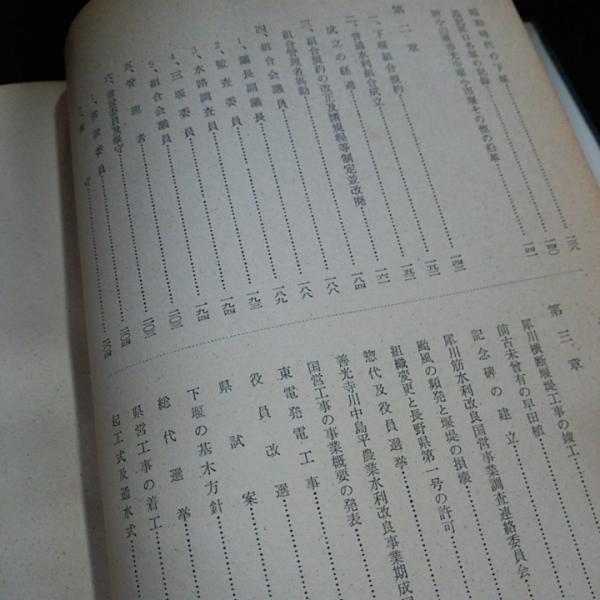 昭和時代の下堰……一三八
第二章
一、下堰組合規約……一五二
二、普通水利組合成立……一六一
成立の経過……一八四
三、組合規約の改正及諸規程等制定並改廃……一八八
組合管理者異動……一八八
四、組合会議員……一八九
1、議長副議長……一九三
2、監査委員……一九四
3、水路調査員……一九四
4、三堰委員……二〇三
5、組合会議員……二〇三
五、管理者
六、常設委員及堰守
1、常設委員
第三章
犀川横断堰堤工事の竣工
前古未曾有の早田植
記念碑の建立
犀川筋水利改良国営事業調査連絡委員会
颱風の頻発と堰堤の損壊
組織変更と長野県第一号の許可
惣代及役員選挙
善光寺川中島平農業水利改良事業期成
国営工事の事業概要の発表
東電発電工事
役員改選
県試案
下堰の基本方針
総代選挙
県営工事の着工
起工式及通水式